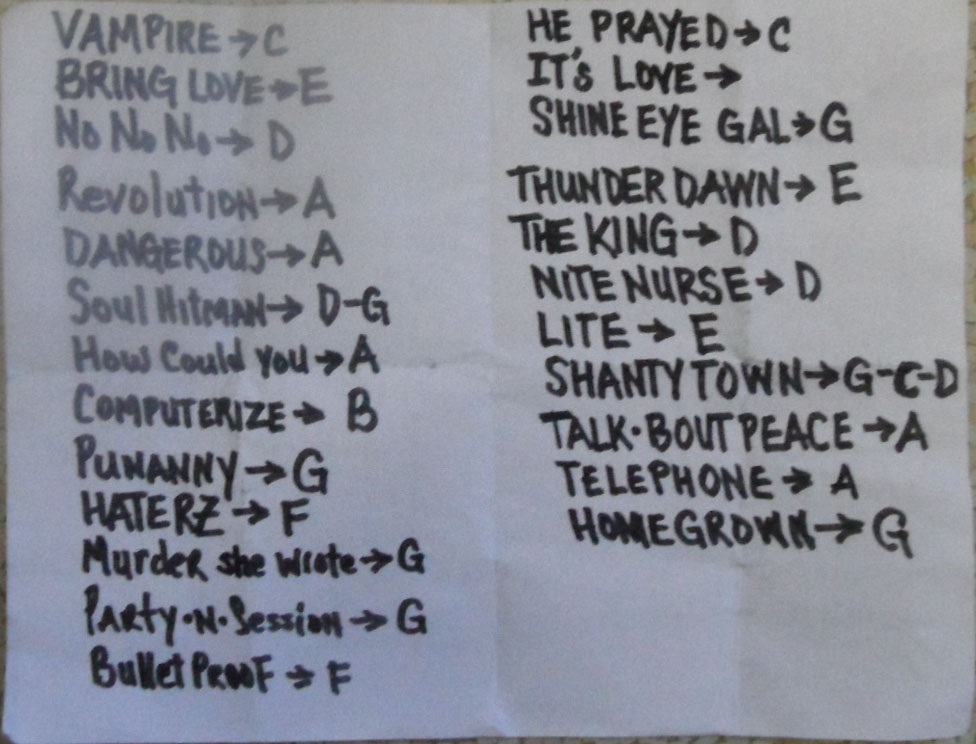 VAMPIRE → C
BRING LOVE → E
No No No → D
Revolution → A
DANGEROUS → A
Soul HitMAN → D-G
How Could you → A
COMPUTERIZE → B
PUNANNY → G
HATERZ → F
Murder she wrote → G
PARty•N•Session → G
Bullet PRooF → F
HE PRAYED → C
IT'S LOVE →
SHINE EYE GAL → G
THUNDER DAWN → E
THE KING → D
NITE NURSE → D
LITE → E
SHANTY TOWN → G-C-D
TALK•BOUT PEACE → A
TELEPHONE → A
HOMEGROWN → G